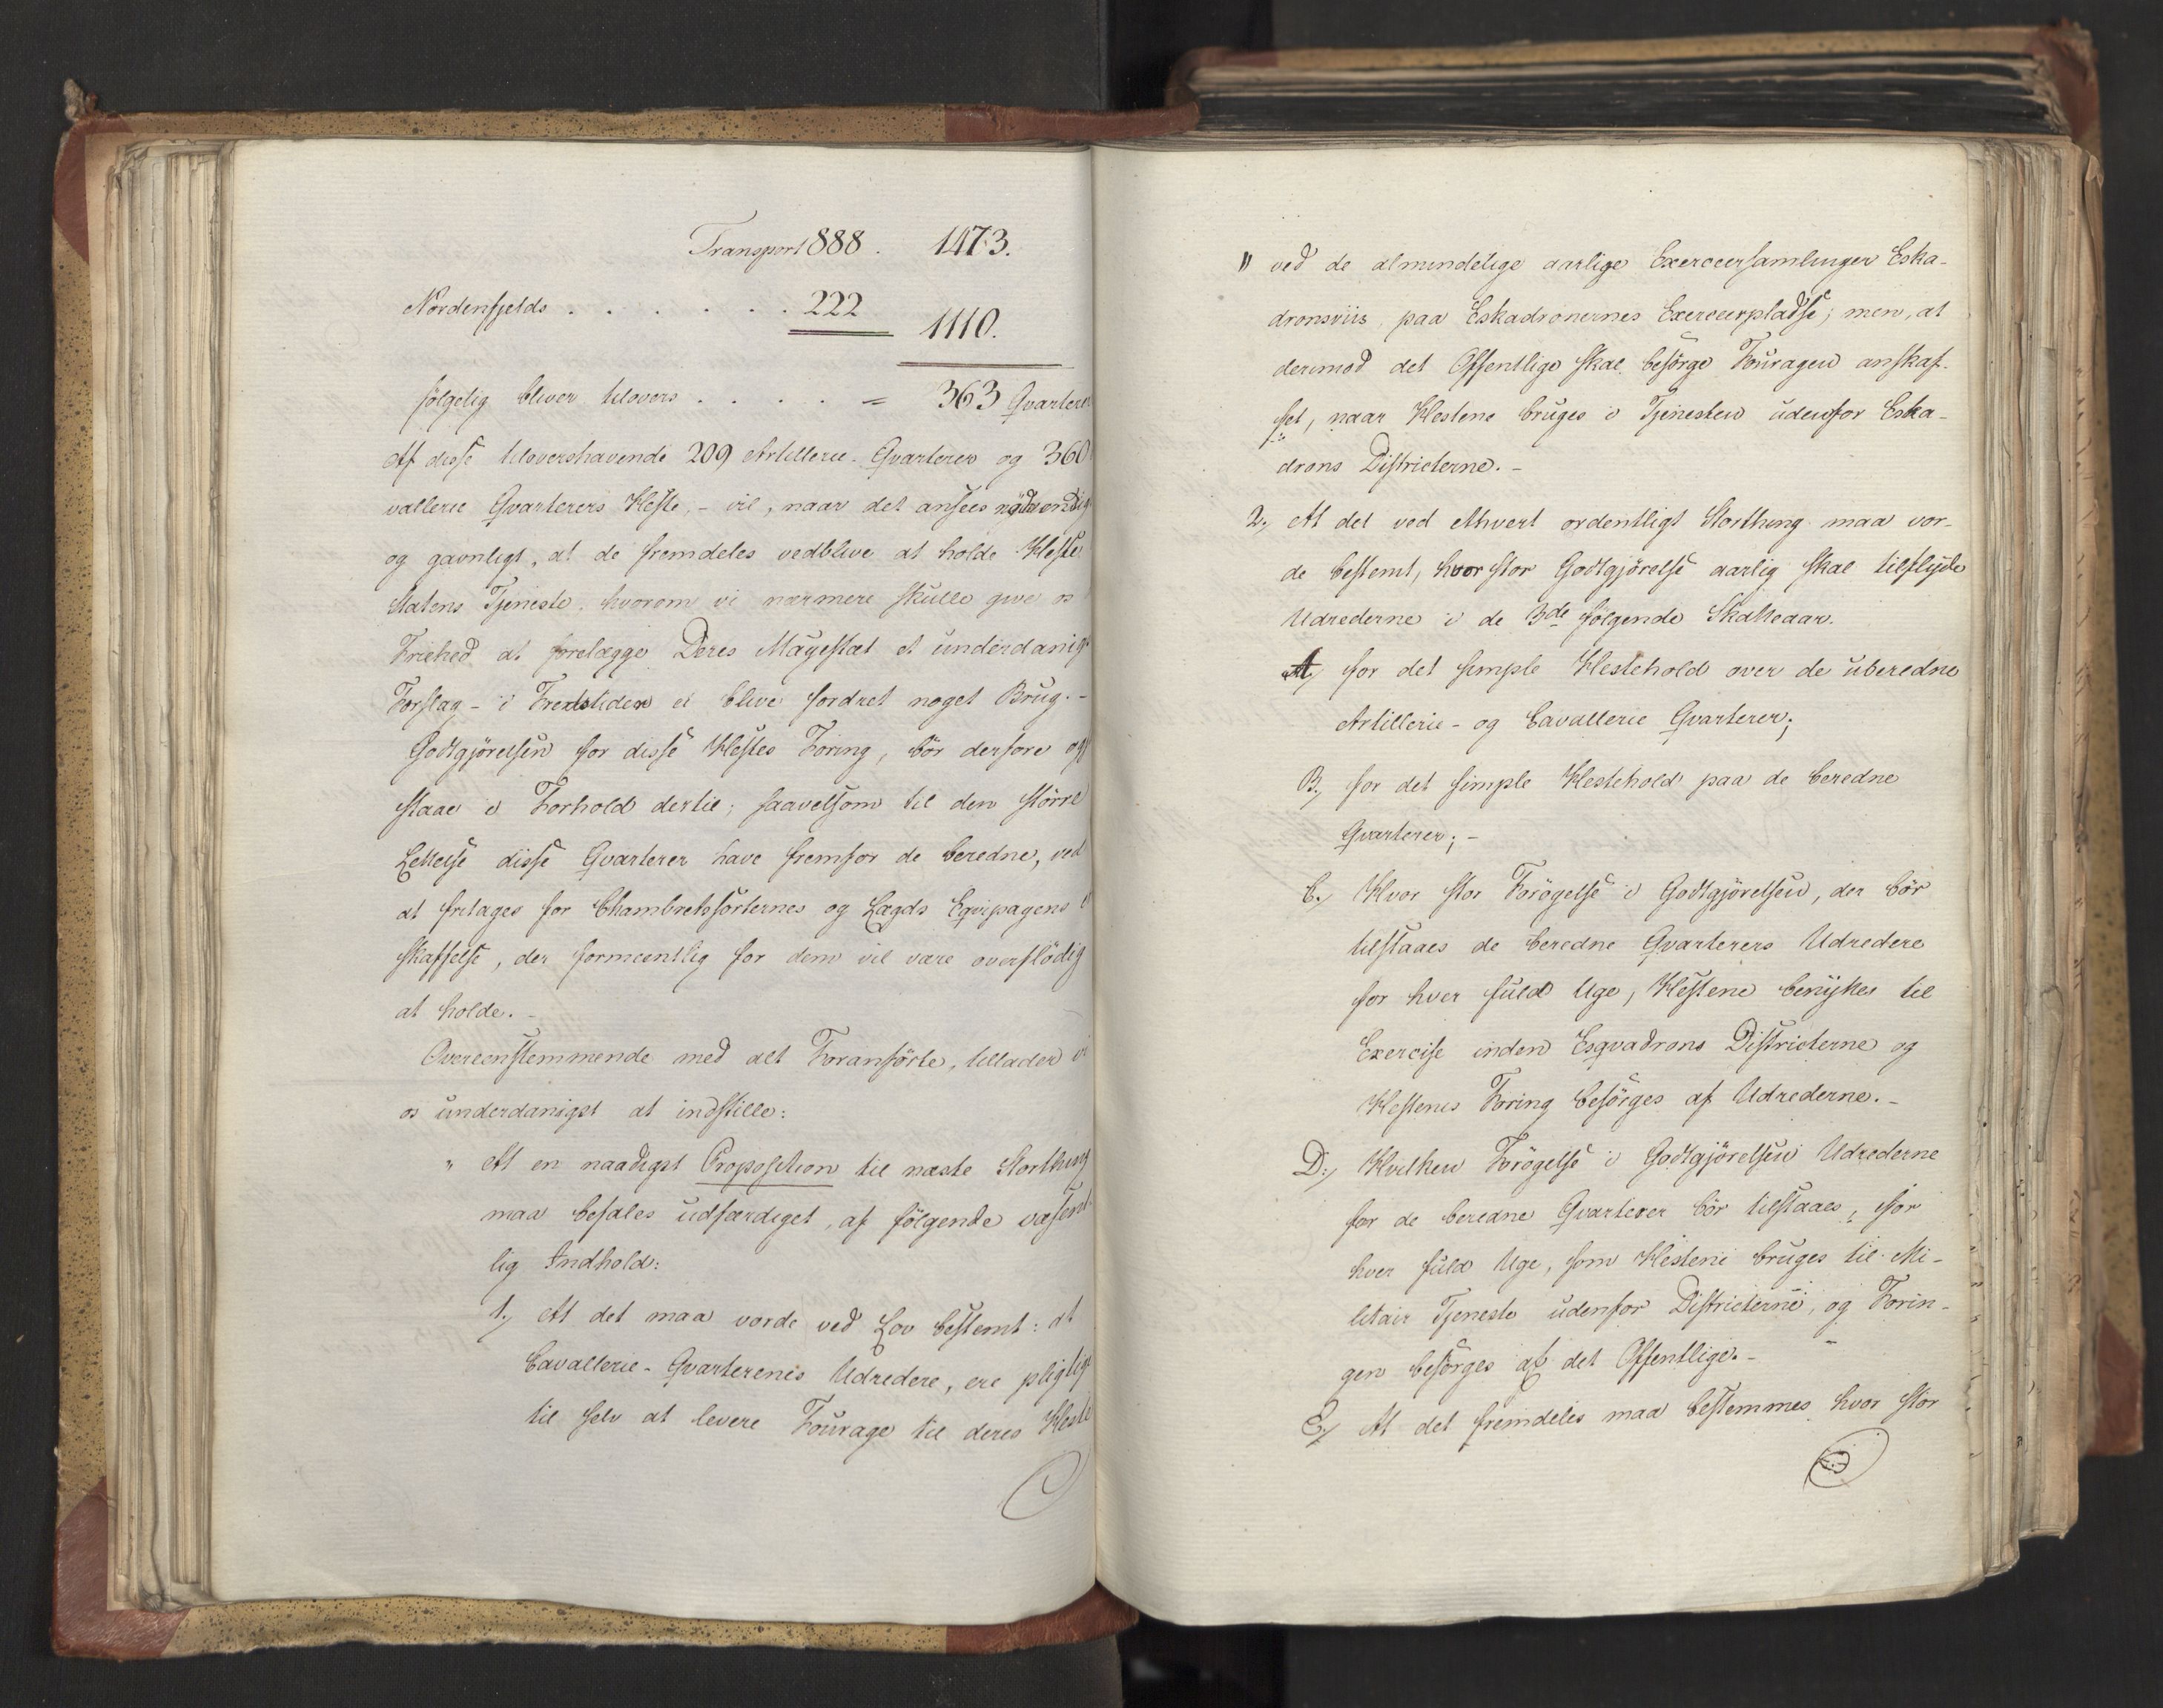 Transport 888. 1473.
Nordenfjelds . . . . . . 222
1110.
følgelig bliver tilovers . . . . . = 363 Qvarterer
Af disse tilovershavende 209 Artillerie-Qvarterer og 360
vallerie Qvarterers Heste, - vil, naar det ansees nødvendig
og gavnligt, at de fremdeles vedblive at holde Heste
Statens Tjeneste, hvorom vi nærmere skulle give os
Friehed at forelægge Deres Majestæt et underdanigt
Forslag - i Fredstider ei blive fordret noget Brug. -
Godtgjørelsen for disse Hestes Foring, bør derfore og
staae i Forhold dertil; saavelsom til den større
Lettelse disse Qvarterer have fremfor de beredne, ved
at fritages for Chambretsforternes og Lægds Eqvipagens
skaffelse, der formeentlig for dem vil være overflødig
at holde. -
Overeenstemmende med alt Foranførte, tillader vi
os underdanigst at indstille:
" At en naadigst Proposition til næste Storthing
maa befales udfærdiget, af følgende væsent-
lig Indhold:
1, At det maa vorde ved Lov bestemt: at
Cavallerie-Qvarterenes Udredere, ere pligtige
til selv at levere Fourage til deres Heste
" ved de almindelige aarlige Exerceersamlinger Eska-
dronsviis, paa Eskadronernes Exerceerpladse; men, at
derimod det Offentlige skal besørge Fouragen anskaf-
fet, naar Hestene bruges i Tjenesten udenfor Eska-
drons Districterne. -
2, At det ved ethvert ordentligt Storthing maa vor-
de bestemt, hvor stor Godtgjørelse aarlig skal tilflyde
Udrederne i de 3de følgende Skatteaar.
A, for det simple Hestehold over de uberedne
Artillerie- og Cavallerie Qvarterer;
B, for det simple Hestehold paa de beredne
Qvarterer; -
C, Hvor stor Forøgelse i Godtgjørelsen, der bør
tilstaaes de beredne Qvarterers Udredere
for hver fuld Uge, Hestene benyttes til
Exercise inden Esqvadrons Districterne og
Hestenes Foring besørges af Udrederne. -
D, Hvilken Forøgelse i Godtgjørelsen Udrederne
for de beredne Qvarterer bør tilstaaes, for
hver fuld Uge, som Hestene bruges til Mi-
litair Tjeneste udenfor Districterne, og Forin-
gen besørges af det Offentlige. -
E, At det fremdeles maa bestemmes hvor stor